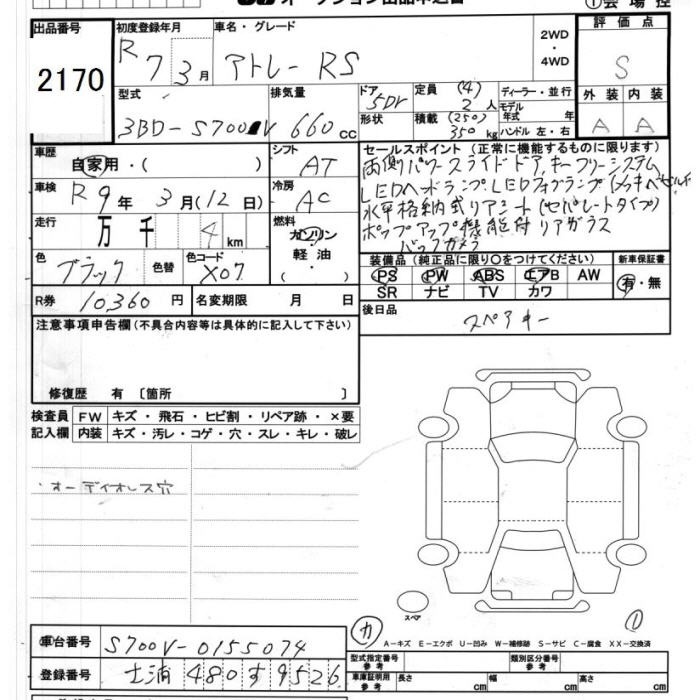 オークション出品申込書
①会場控
出品番号
2170
初度登録年月
R7 3月
車名・グレード
アトレー RS
2WD
・
4WD
評価点
S
外装 内装
A A
型式
3BD-S700V
排気量
660cc
ドア
5Dr
形状
定員
(4)
2人
積載
(250)
350kg
ディーラー・並行
モデル
年式 年
ハンドル 左・右
車歴
自家用・( )
シフト
AT
車検
R9年 3月(12日)
冷房
AC
走行
万 千 4km
燃料
ガソリン
軽油
・
( )
色
ブラック
色替
色コード
X07
R券
10360円
名変期限 月 日
セールスポイント(正常に機能するものに限ります)
両側パワースライドドア,キーフリーシステム
LEDヘッドランプ,LEDフォグランプ(メッキベゼル付
水平格納式リアシート(セパレートタイプ)
ポップアップ機能付リアガラス
バックカメラ
装備品(純正品に限り○をつけてください)
PS PW ABS エアB AW
SR ナビ TV カワ
新車保証書
有・無
後日品
スペアキー
注意事項申告欄(不具合内容等は具体的に記入して下さい)
修復歴 有 〔箇所 〕
検査員
記入欄
FW キズ・飛石・ヒビ割・リペア跡・×要
内装 キズ・汚レ・コゲ・穴・スレ・キレ・破レ
・オーディオレス穴
スペア
カ
①
A-キズ E-エクボ U-凹み W-補修跡 S-サビ C-腐食 XX-交換済
車台番号
S700V-0155074
登録番号
土浦 480 す 9526
型式指定番号
参考
類別区分番号
参考
車庫証明用
参考
長さ cm
幅 cm
高さ cm